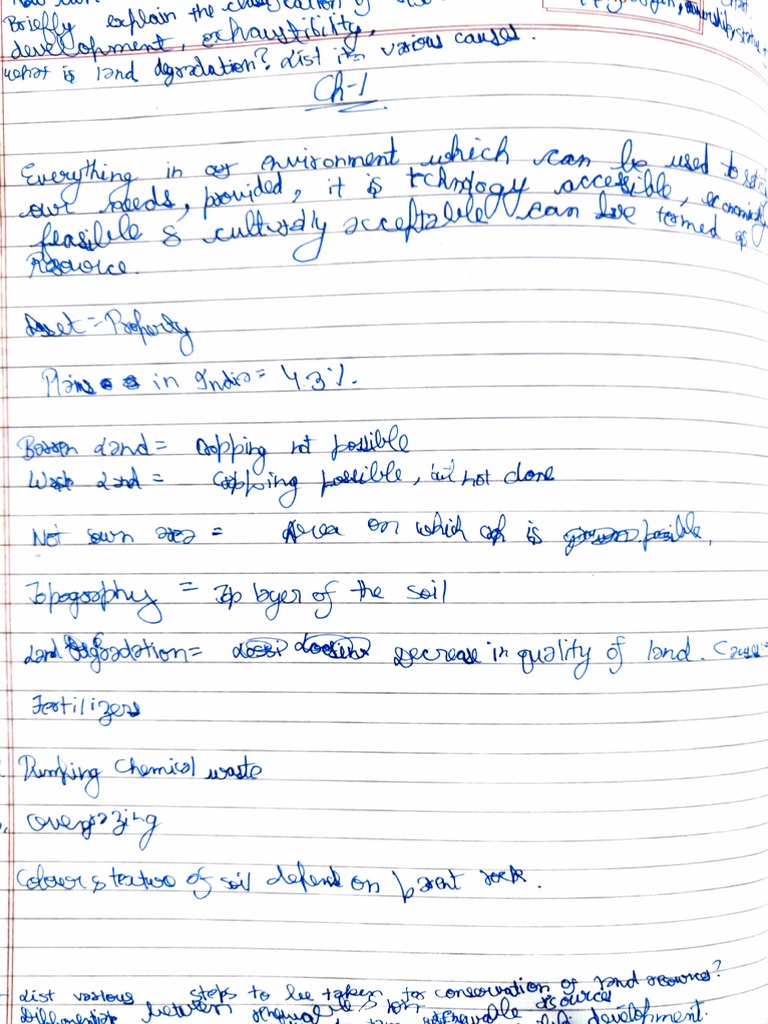 Briefly explain the classification of
development, exhaustibility,
what is land degradation? List its various causes.
Ch-1
Everything in our environment which can be used to
our needs, provided, it is technology accessible,
feasible & culturally acceptable can be termed as
Resource.
Asset = Property
Plains in India = 43%.
Barren Land = Cropping not possible
Waste Land = Cropping possible, but not done
Net sown area = Area on which is possible,
Topography = Top layer of the soil
Land degradation = Decrease in quality of land.
Fertilizers
Dumping Chemical waste
Overgrazing
Colour & texture of soil depend on parent rock.
List various steps to be taken for conservation of land resources?
between renewable & non renewable resources
development.